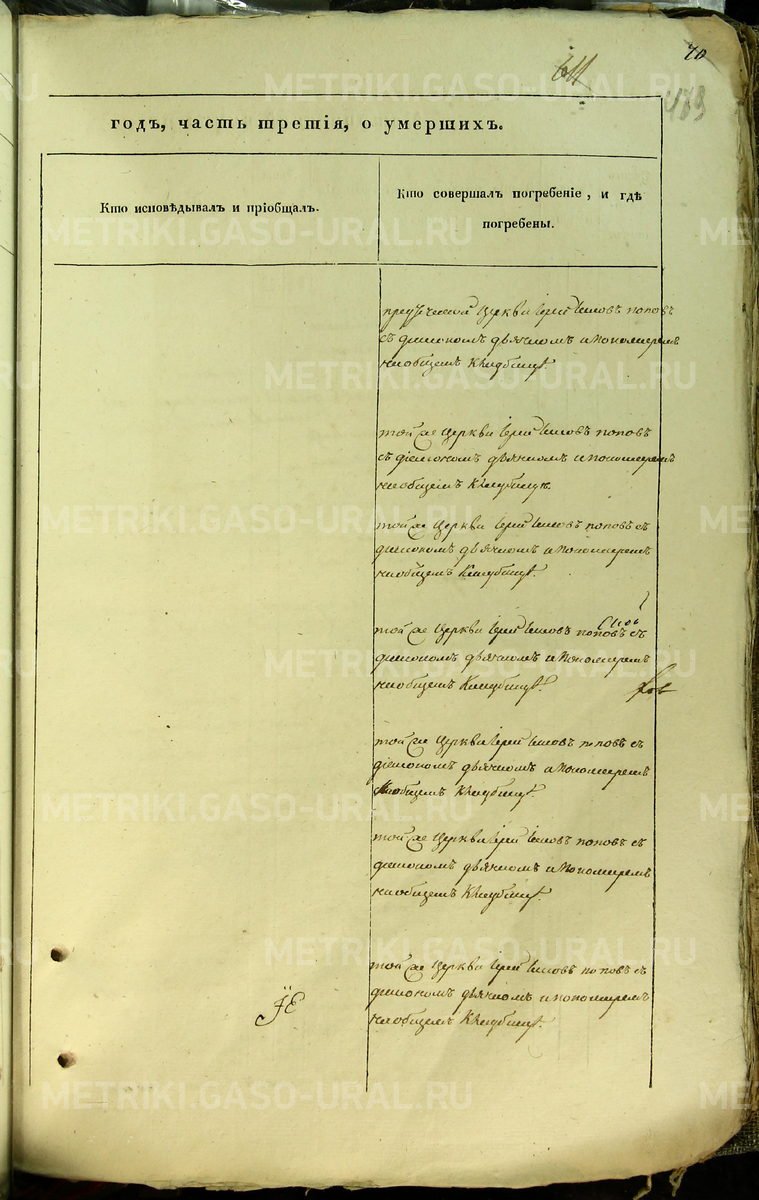 70
483
годъ, часть третія, о умершихъ.
Кто исповѣдывалъ и пріобщалъ.
Кто совершалъ погребеніе, и гдѣ
погребены.
церкви Іерей Іяковъ поповъ
съ діакономъ дьячкомъ и пономаремъ
на общемъ кладбищѣ.
той же церкви Іерей Іяковъ поповъ
съ діакономъ дьячкомъ и пономаремъ
на общемъ кладбищѣ.
той же церкви Іерей Іяковъ поповъ съ
діакономъ дьячкомъ и пономаремъ
на общемъ кладбищѣ.
той же церкви Іерей Іяковъ поповъ съ
діакономъ дьячкомъ и пономаремъ
на общемъ кладбищѣ.
той же церкви Іерей Іяковъ поповъ съ
діакономъ дьячкомъ и пономаремъ
на общемъ кладбищѣ.
той же церкви Іерей Іяковъ поповъ съ
діакономъ дьячкомъ и пономаремъ
на общемъ кладбищѣ.
той же церкви Іерей Іяковъ поповъ съ
діакономъ дьячкомъ и пономаремъ
на общемъ кладбищѣ.
METRIKI.GASO-URAL.RU